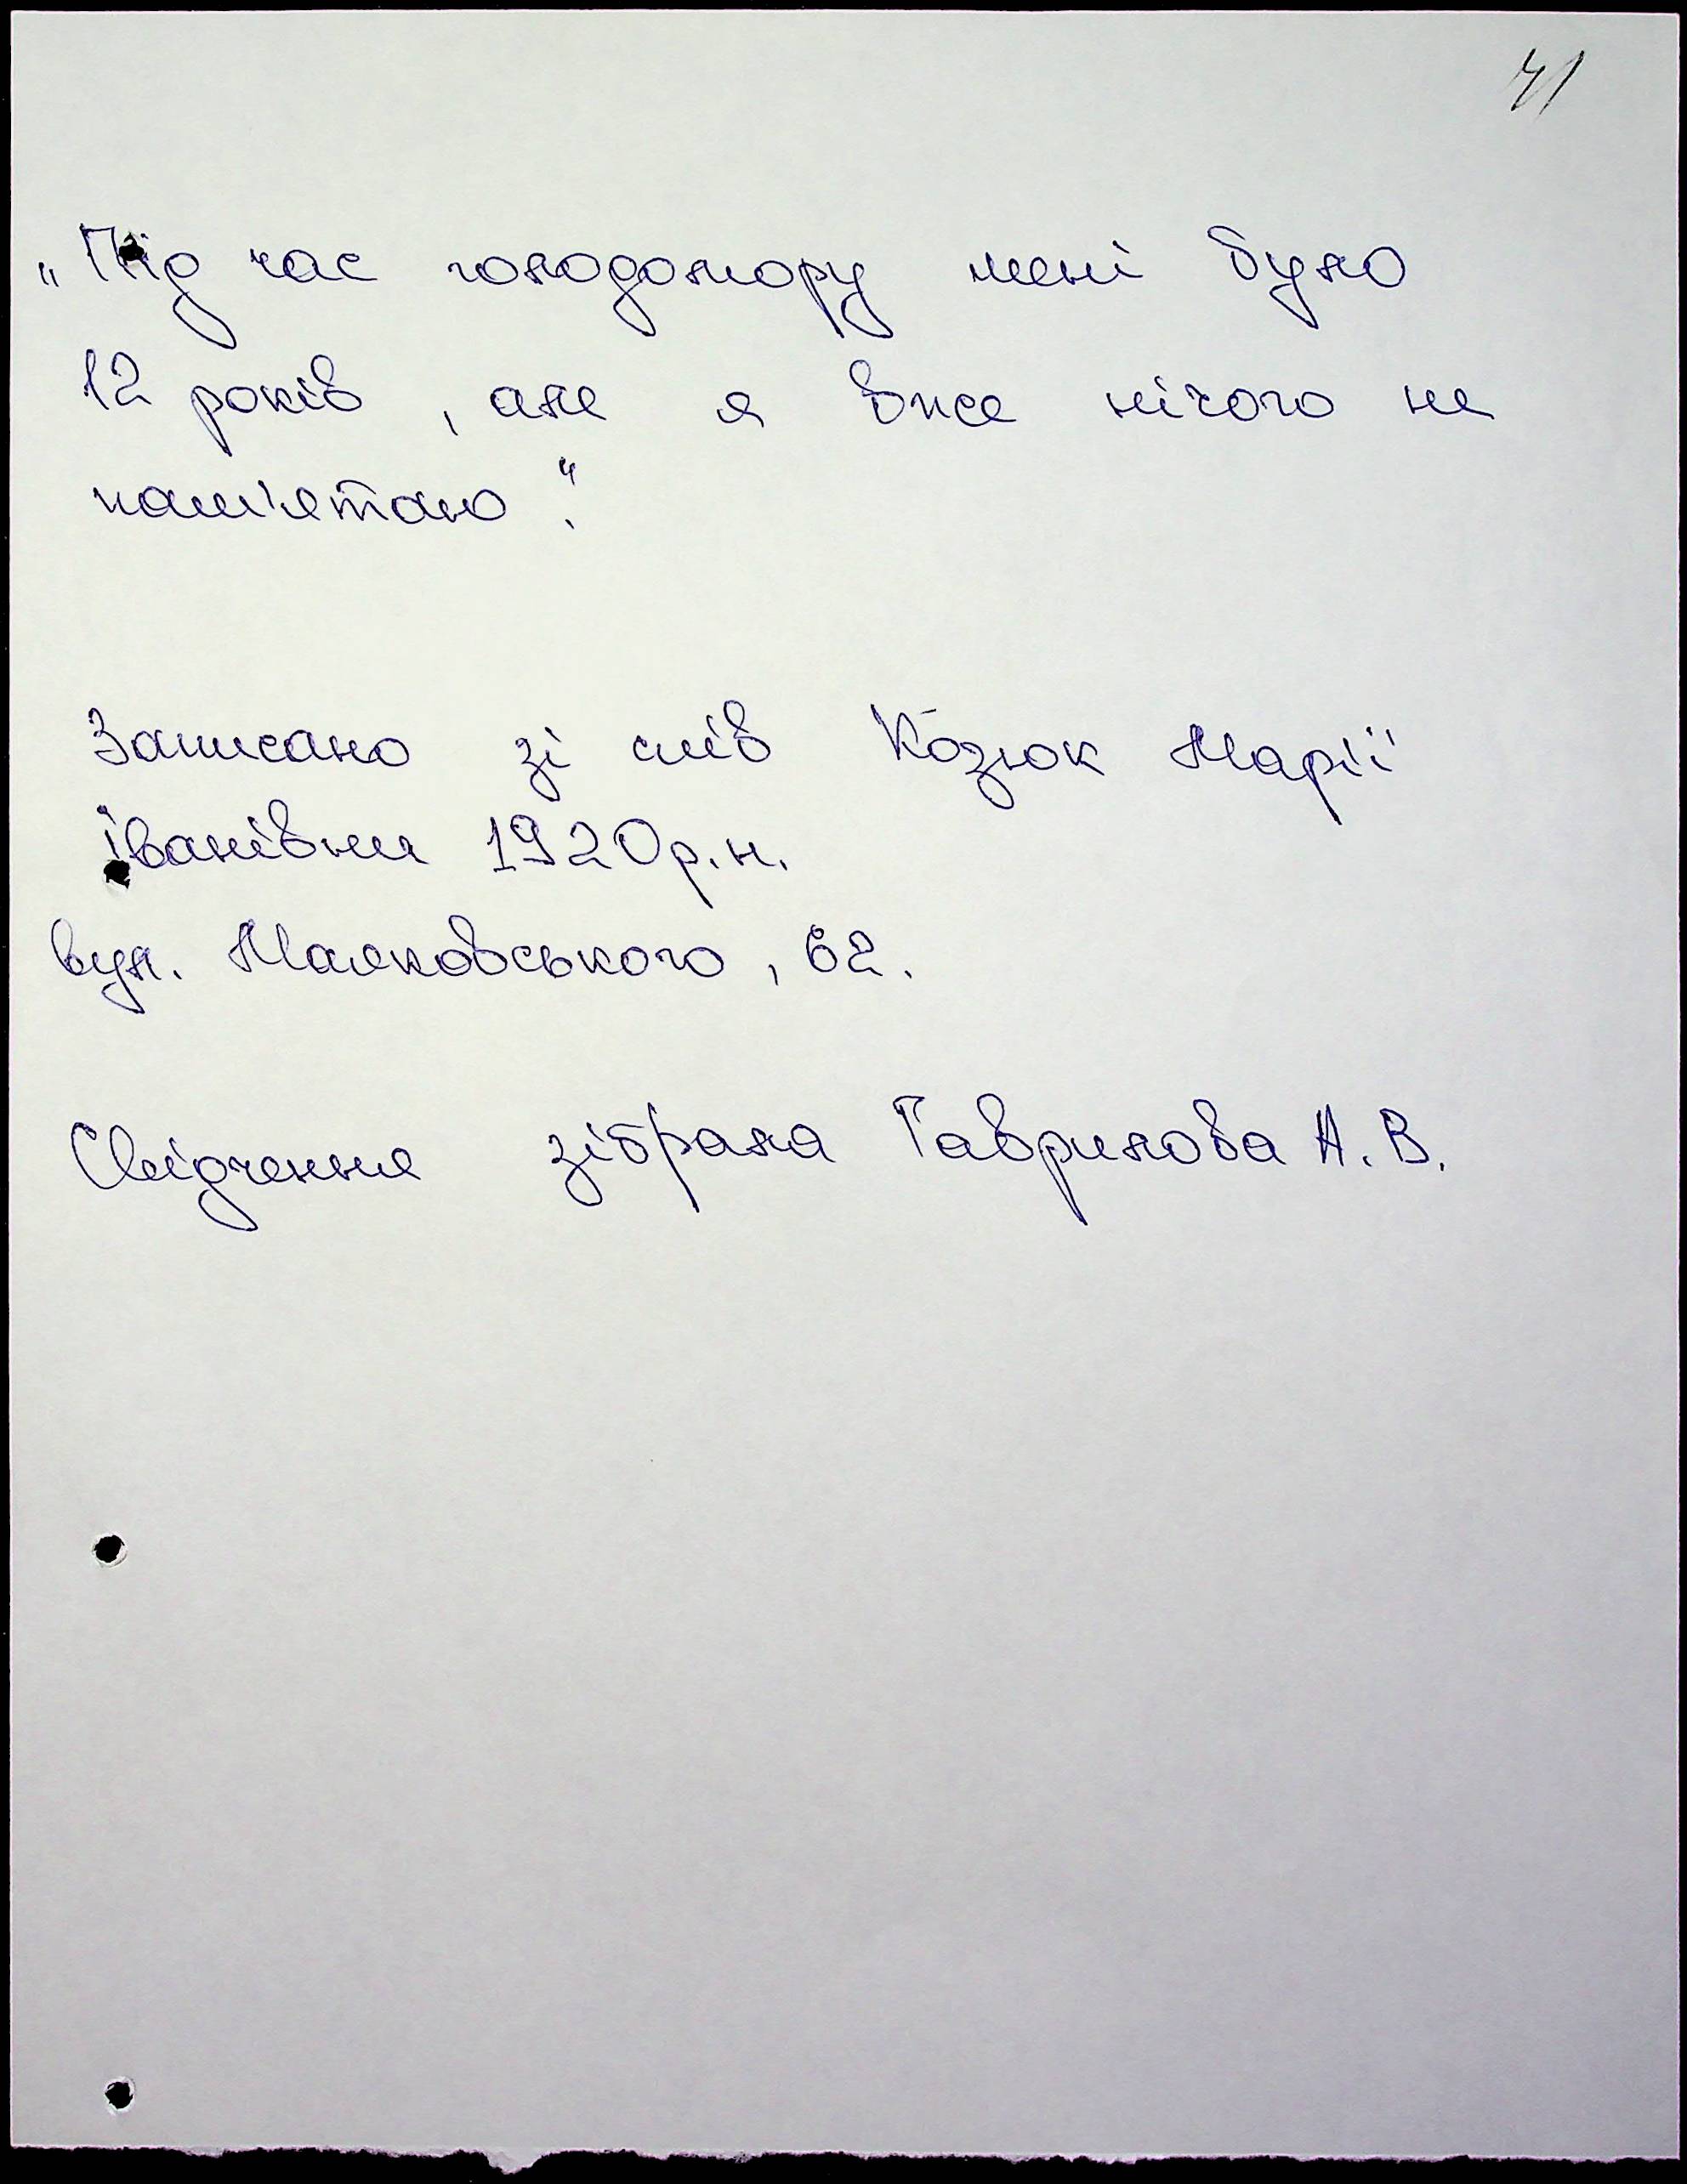 41
„Під час голодомору мені було
12 років, але я вже нічого не
пам'ятаю".
Записано зі слів Козюк Марії
Іванівни 1920р.н.
вул. Маяковського, 62.
Свідчення зібрала Гаврилова А.В.